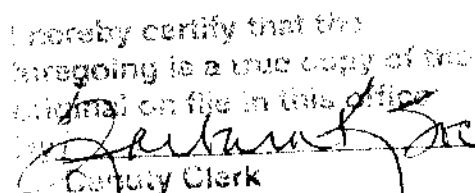 I hereby certify that the
foregoing is a true copy of the
original on file in this office
Barbara
Deputy Clerk